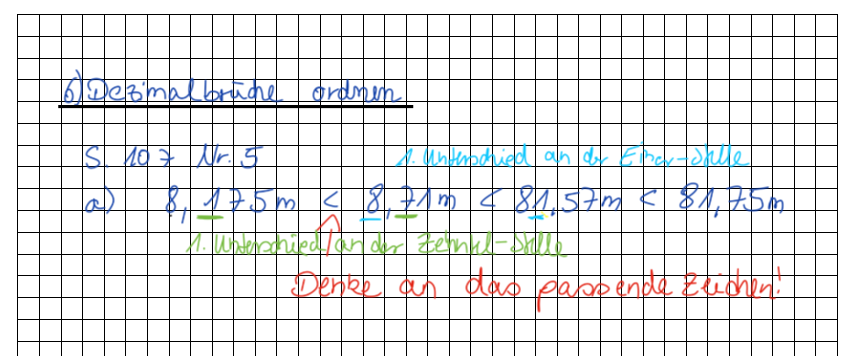 6) Dezimalbrüche ordnen
S. 107 Nr. 5
1. Unterschied an der Einer-Stelle
a) 8,175m < 8,71m < 81,57m < 81,75m
1. Unterschied an der Zehntel-Stelle
Denke an das passende Zeichen!